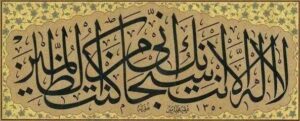 لا اله الا انت سبحانك انى كنت من الظالمين
١٣٥٠